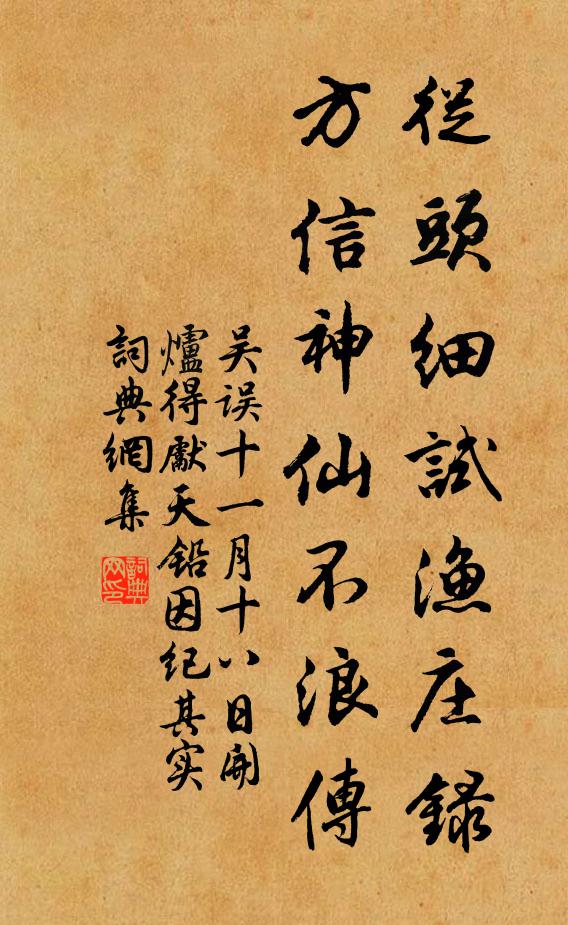 從頭細試漁庄録
方信神仙不浪傳
吴误十一月十八日開
爐得獻天鉛因纪其实
詞典網集
詞典
网印